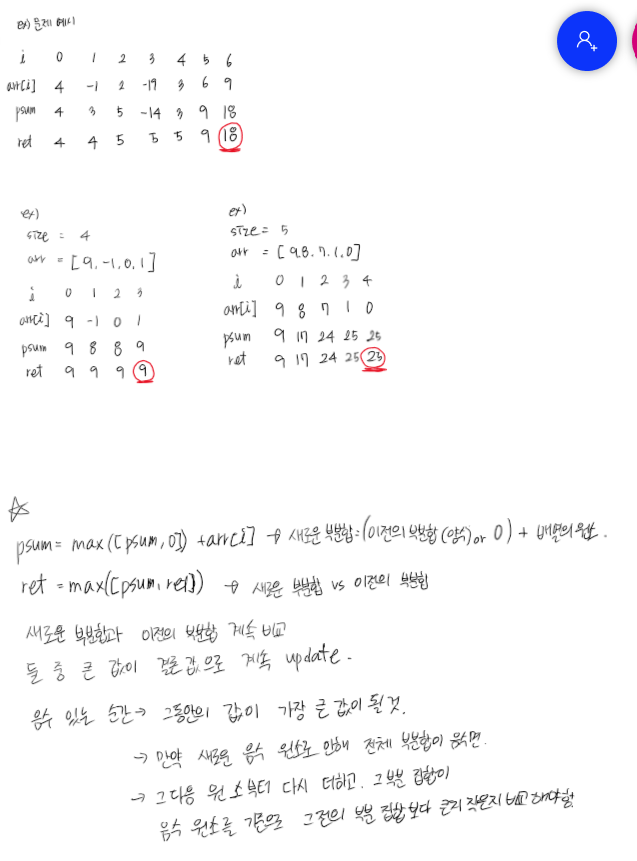 ex) 문제 예시
i 0 1 2 3 4 5 6
arr[i] 4 -1 2 -19 3 6 9
psum 4 3 5 -14 3 9 18
ret 4 4 5 5 5 9 18
ex)
size : 4
arr = [9, -1, 0, 1]
i 0 1 2 3
arr[i] 9 -1 0 1
psum 9 8 8 9
ret 9 9 9 9
ex)
size = 5
arr = [9.8.7.1.0]
i 0 1 2 3 4
arr[i] 9 8 7 1 0
psum 9 17 24 25 25
ret 9 17 24 25 25
psum = max([psum, 0]) + arr[i] → 새로운 부분합 : (이전의 부분합 (양수) or 0) + 배열의 원소.
ret = max([psum, ret]) → 새로운 부분합 vs 이전의 부분합
새로운 부분합과 이전의 부분합 계속 비교
둘 중 큰 값이 결론 값으로 계속 update.
음수 있는 순간 → 그동안의 값이 가장 큰 값이 될 것.
→ 만약 새로운 음수 원소로 인해 전체 부분합이 음수면.
→ 그 다음 원소부터 다시 더하고. 그 부분 집합이
음수 원소를 기준으로 그전의 부분 집합보다 큰지 작은지 비교해야함